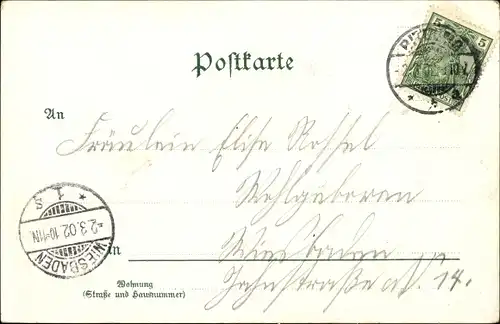 5 5
Postkarte
An
Fräulein Elise Rossel
Wohlgeboren
Wiesbaden
in
Jahnstraße 14.
Wohnung
(Straße und Hausnummer)
1
2.3.02.10-11V.
WIESBADEN